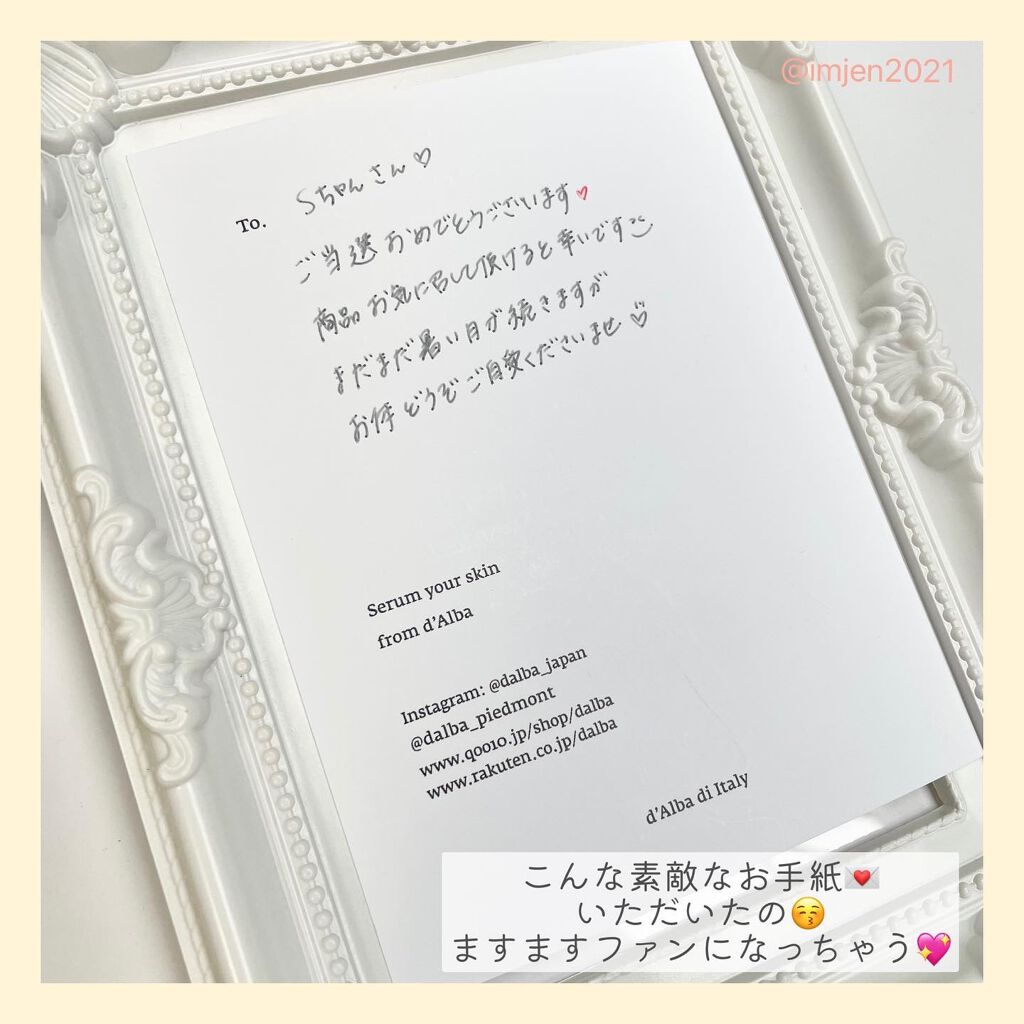 @imjen2021
To. Sちゃんさん♡
ご当選おめでとうございます♥
商品お気に召して頂けると幸いです
まだまだ暑い日が続きますが
お体どうぞご自愛くださいませ♡
Serum your skin
from d'Alba
Instagram: @dalba_japan
@dalba_piedmont
www.qoo10.jp/shop/dalba
www.rakuten.co.jp/dalba
d'Alba di Italy
こんな素敵なお手紙💌
いただいたの😚
ますますファンになっちゃう💖